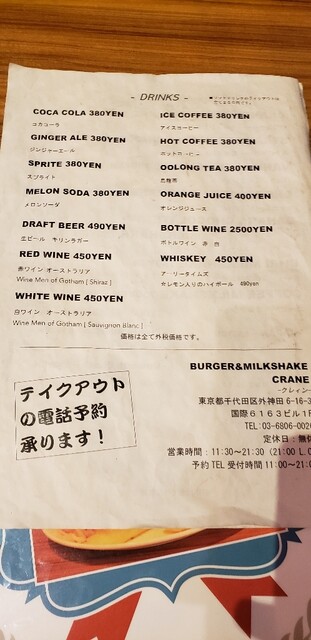 - DRINKS -
COCA COLA 380YEN
コカコーラ
GINGER ALE 380YEN
ジンジャーエール
SPRITE 380YEN
スプライト
MELON SODA 380YEN
メロンソーダ
DRAFT BEER 490YEN
生ビール キリンラガー
RED WINE 450YEN
赤ワイン オーストラリア
Wine Men of Gotham [ Shiraz ]
WHITE WINE 450YEN
白ワイン オーストラリア
Wine Men of Gotham [ Sauvignon Blanc ]
ICE COFFEE 380YEN
アイスコーヒー
HOT COFFEE 380YEN
ホットコーヒー
OOLONG TEA 380YEN
烏龍茶
ORANGE JUICE 400YEN
オレンジジュース
BOTTLE WINE 2500YEN
ボトルワイン 赤 白
WHISKEY 450YEN
アーリータイムズ
☆レモン入りのハイボール 490yen
価格は全て外税価格です。
テイクアウト
の電話予約
承ります!
BURGER&MILKSHAKE
CRANE
-クレイン-
東京都千代田区外神田6-16-3
国際6163ビル1F
TEL:03-6806-002
定休日:無休
営業時間:11:30~21:30 (21:00 L.O
予約 TEL 受付時間 11:00~21:0